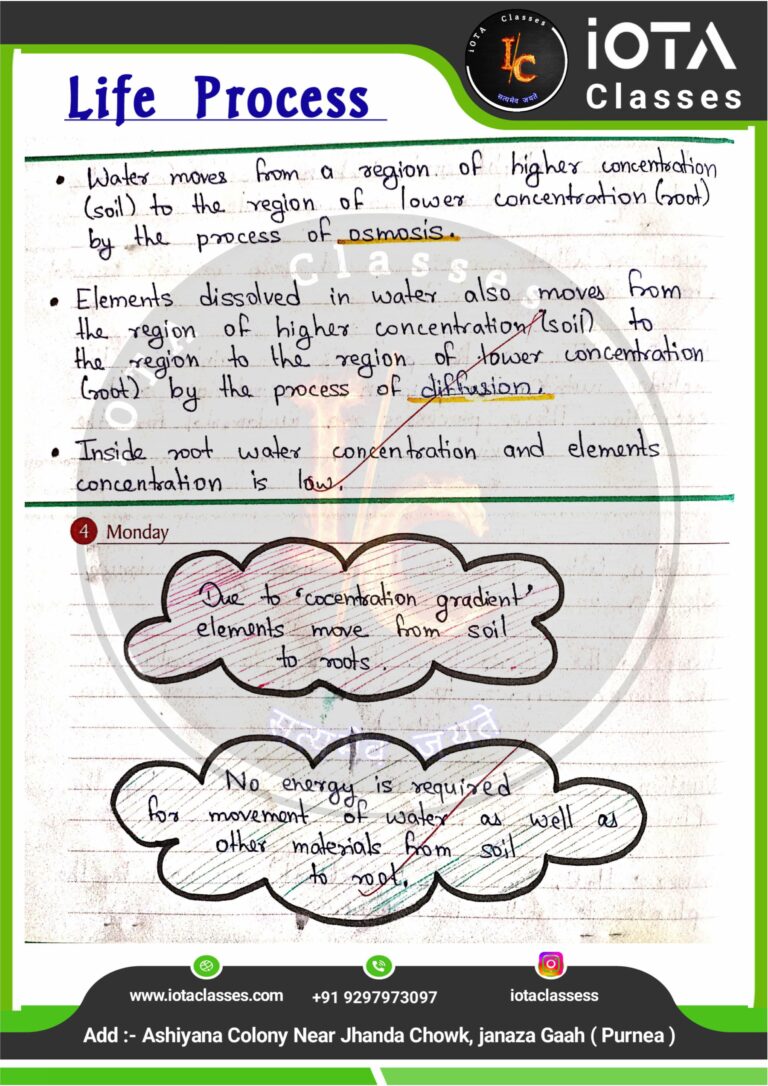 iOTA Classes
I/C
सत्यमेव जयते
iOTA
Classes
Life Process
• Water moves from a region of higher concentration
(soil) to the region of lower concentration (root)
by the process of osmosis.
Classes
iOTA
• Elements dissolved in water also moves from
the region of higher concentration (soil) to
the region to the region of lower concentration
(root) by the process of diffusion.
• Inside root water concentration and elements
concentration is low.
I/C
4 Monday
Due to 'cocentration gradient'
elements move from soil
to roots.
सत्यमेव जयते
No energy is required
for movement of water as well as
other materials from soil
to root.
www.iotaclasses.com
+91 9297973097
iotaclassess
Add :- Ashiyana Colony Near Jhanda Chowk, janaza Gaah ( Purnea )